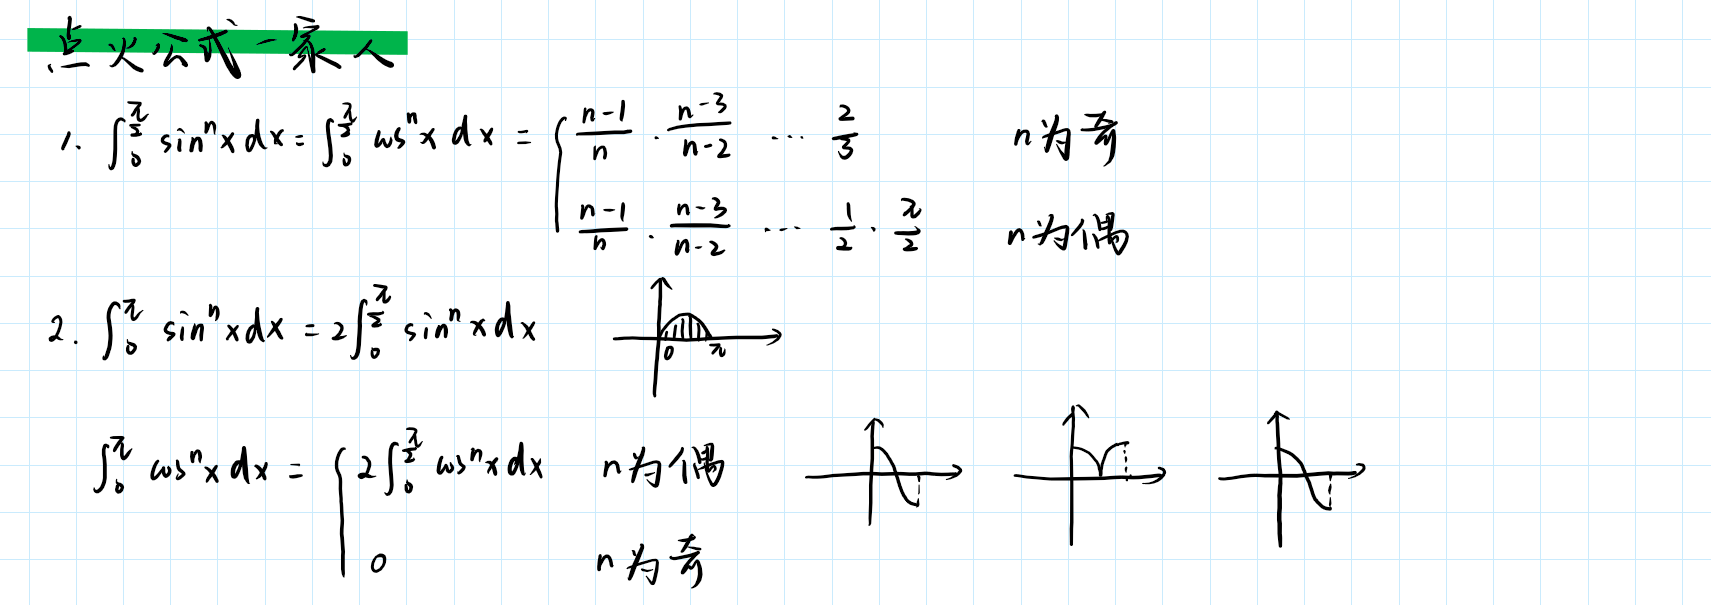 点火公式一家人
1. ∫₀^(π/2) sinⁿx dx = ∫₀^(π/2) cosⁿx dx = { (n-1)/n · (n-3)/(n-2) ··· 2/3 n为奇
(n-1)/n · (n-3)/(n-2) ··· 1/2 · π/2 n为偶
2. ∫₀^π sinⁿx dx = 2∫₀^(π/2) sinⁿx dx
0 π
∫₀^π cosⁿx dx = { 2∫₀^(π/2) cosⁿx dx n为偶
0 n为奇